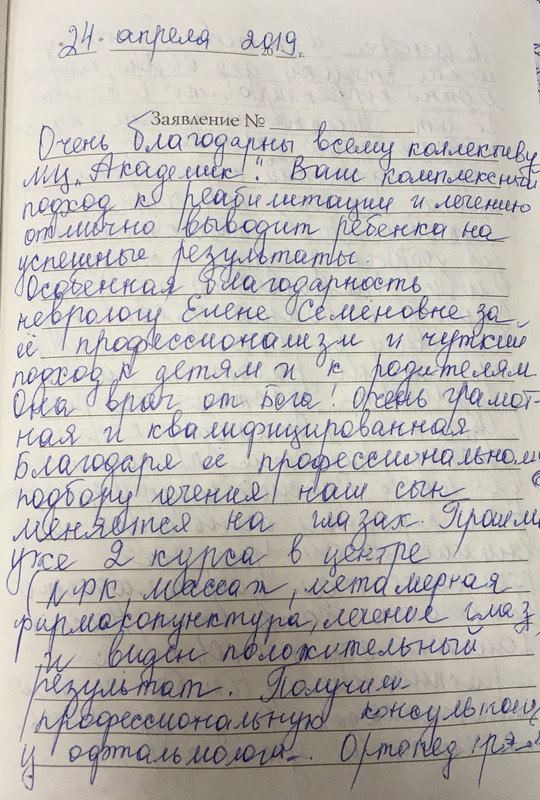 24. апреля 2019г.
Заявление №
Очень благодарны всему коллективу
МЦ „Академик“! Ваш комплексный
подход к реабилитации и лечению
отлично выводит ребенка на
успешные результаты.
Особенная благодарность
неврологу Елене Семёновне за
её профессионализм и чуткий
подход к детям и к родителям
Она врач от Бога! Очень грамот-
ная и квалифицированная
Благодаря её профессиональном
подбору лечения наш сын
меняется на глазах. Прошли
уже 2 курса в центре
(ЛФК массаж, метамерная
фармакопунктура, лечение глаз,
и виден положительный
результат. Получили
профессиональную консультац
у офтальмолога. Ортопед